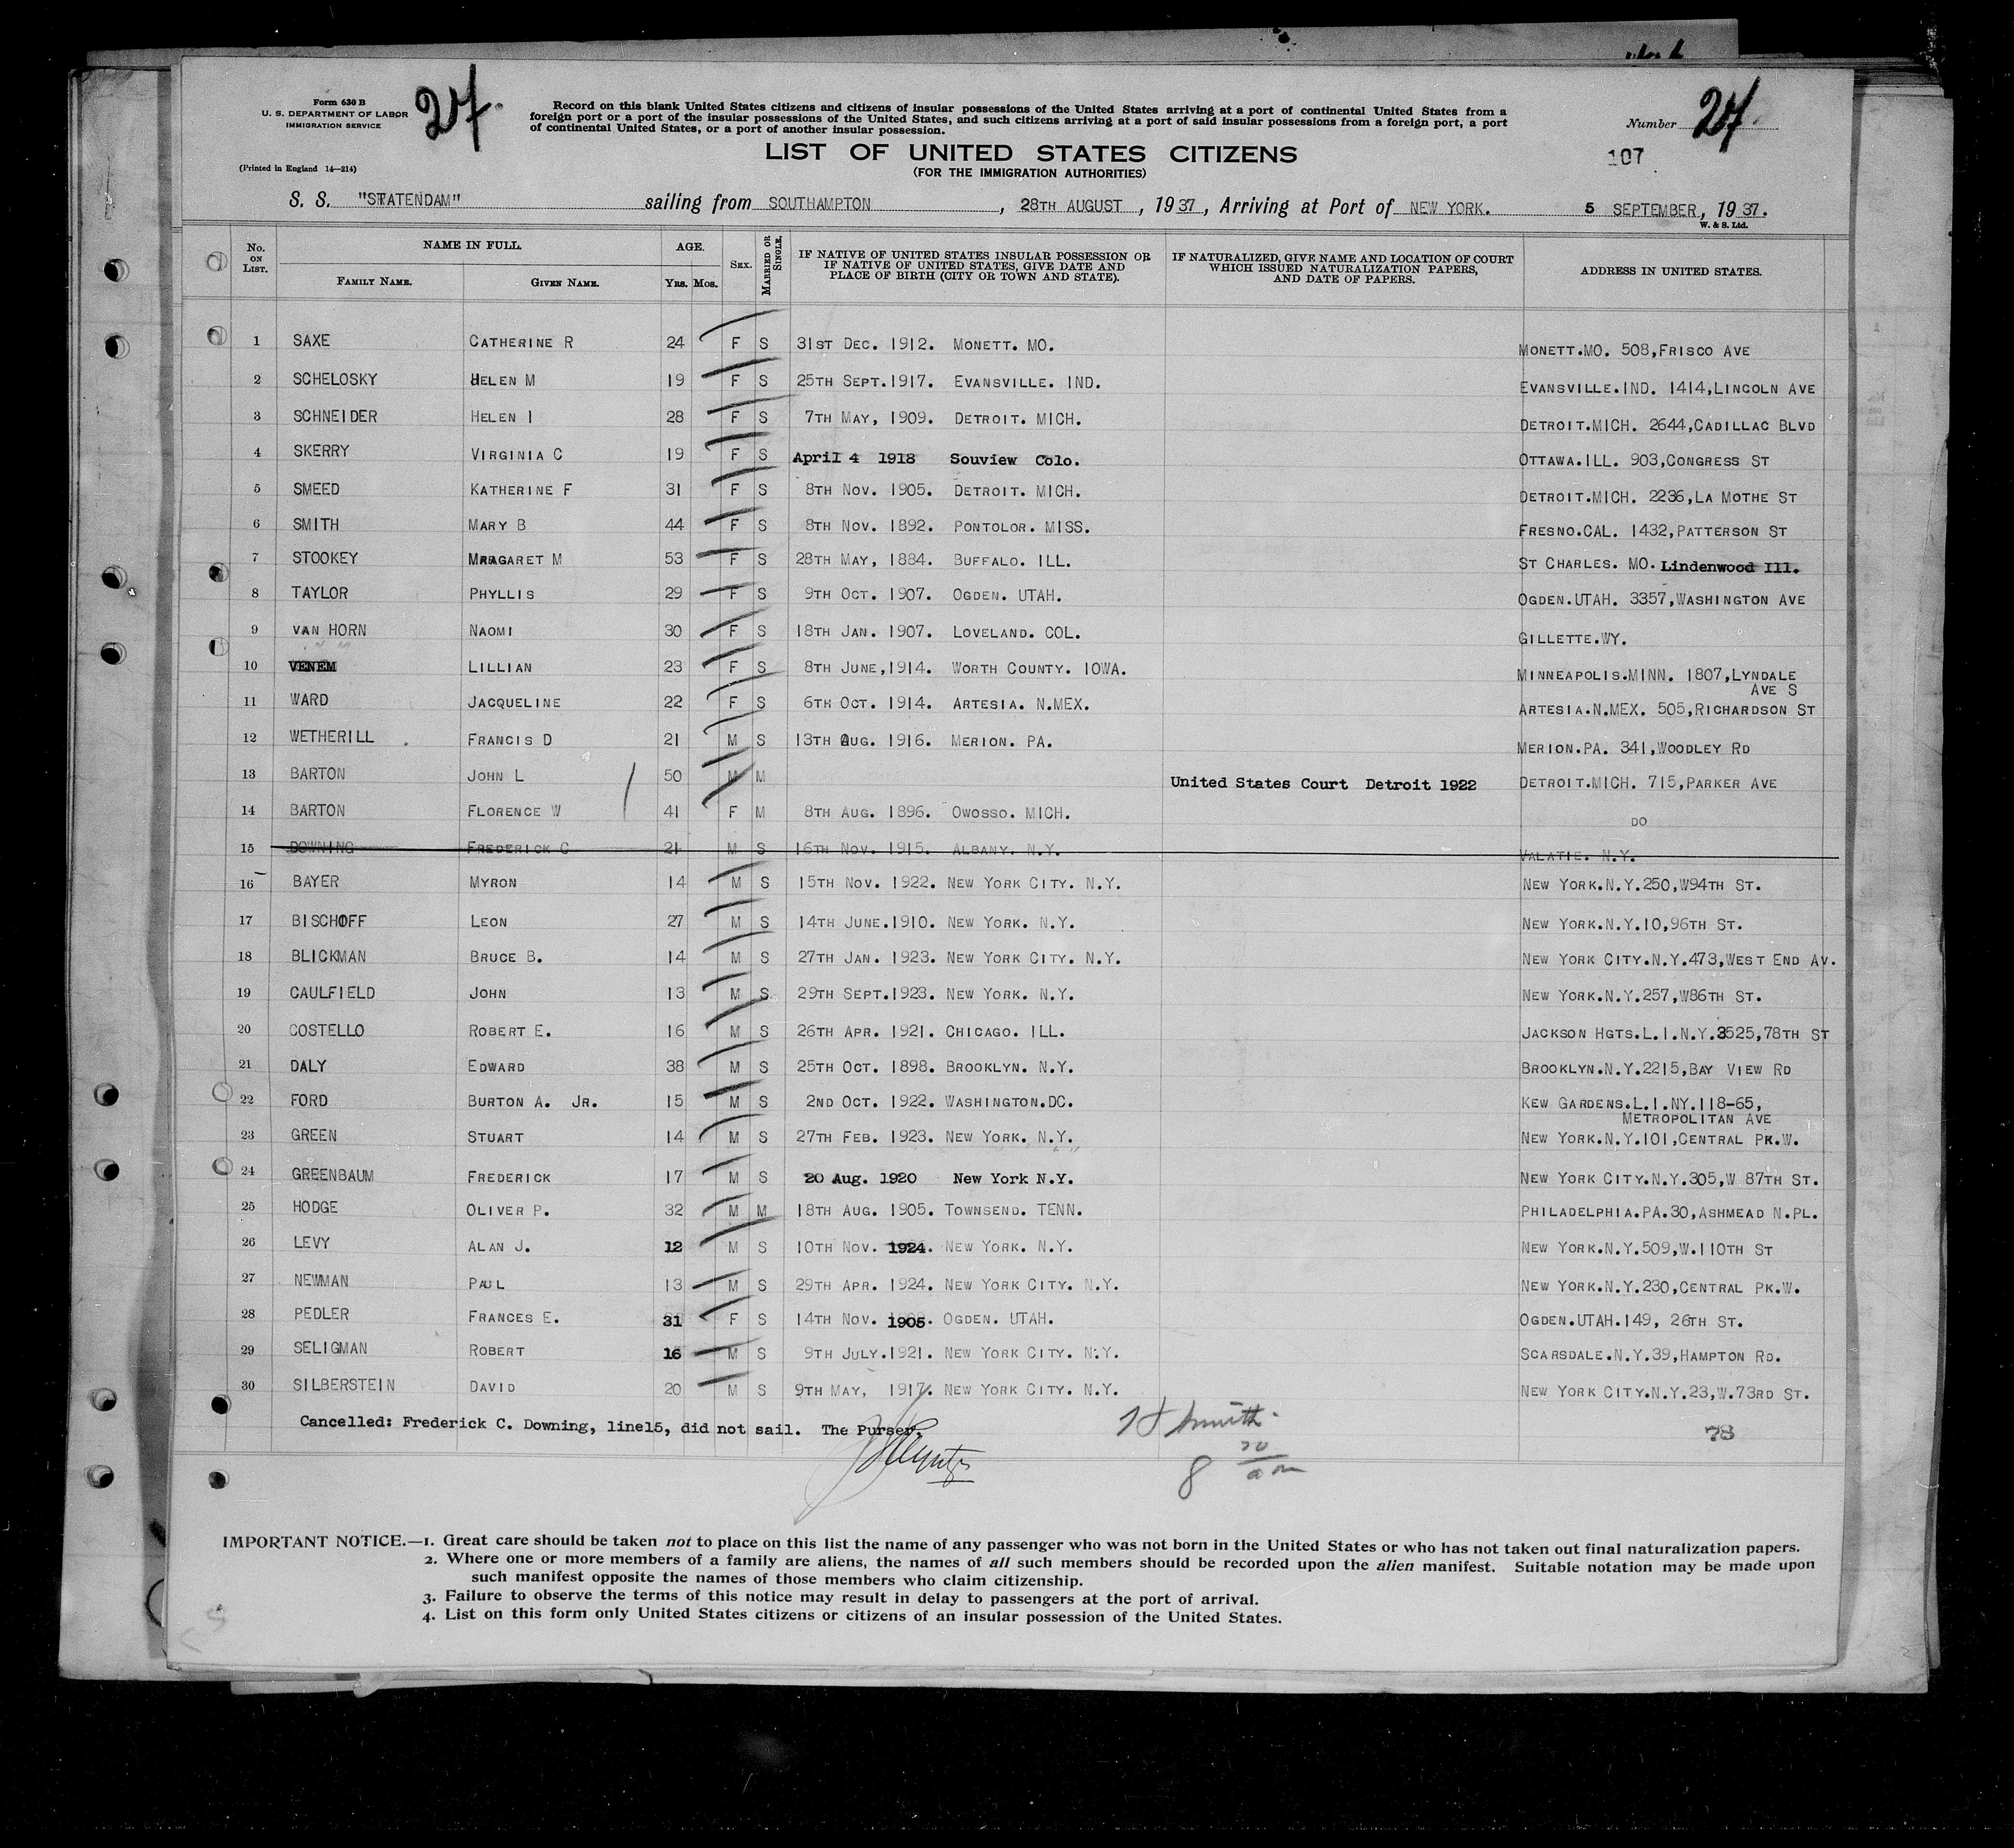 Form 630 B
U. S. DEPARTMENT OF LABOR
IMMIGRATION SERVICE
(Printed in England 14—214)
27.
Record on this blank United States citizens and citizens of insular possessions of the United States arriving at a port of continental United States from a
foreign port or a port of the insular possessions of the United States, and such citizens arriving at a port of said insular possessions from a foreign port, a port
of continental United States, or a port of another insular possession.
Number 27.
LIST OF UNITED STATES CITIZENS
(FOR THE IMMIGRATION AUTHORITIES)
107
S. S. "STATENDAM" sailing from SOUTHAMPTON, 28TH AUGUST, 1937, Arriving at Port of NEW YORK. 5 SEPTEMBER, 1937.
W. & S. Ltd.
No. ON LIST. NAME IN FULL. FAMILY NAME. GIVEN NAME. AGE. YRS. MOS. SEX. MARRIED OR SINGLE. IF NATIVE OF UNITED STATES INSULAR POSSESSION OR IF NATIVE OF UNITED STATES, GIVE DATE AND PLACE OF BIRTH (CITY OR TOWN AND STATE). IF NATURALIZED, GIVE NAME AND LOCATION OF COURT WHICH ISSUED NATURALIZATION PAPERS, AND DATE OF PAPERS. ADDRESS IN UNITED STATES.
1 SAXE CATHERINE R 24 F S 31ST DEC. 1912. MONETT. MO. MONETT.MO. 508,FRISCO AVE
2 SCHELOSKY HELEN M 19 F S 25TH SEPT.1917. EVANSVILLE. IND. EVANSVILLE.IND. 1414,LINCOLN AVE
3 SCHNEIDER HELEN I 28 F S 7TH MAY, 1909. DETROIT. MICH. DETROIT.MICH. 2644,CADILLAC BLVD
4 SKERRY VIRGINIA C 19 F S April 4 1918 Souview Colo. OTTAWA.ILL. 903,CONGRESS ST
5 SMEED KATHERINE F 31 F S 8TH NOV. 1905. DETROIT. MICH. DETROIT.MICH. 2236,LA MOTHE ST
6 SMITH MARY B 44 F S 8TH NOV. 1892. PONTOLOR. MISS. FRESNO.CAL. 1432,PATTERSON ST
7 STOOKEY MARGARET M 53 F S 28TH MAY, 1884. BUFFALO. ILL. ST CHARLES. MO. Lindenwood Ill.
8 TAYLOR PHYLLIS 29 F S 9TH OCT. 1907. OGDEN. UTAH. OGDEN.UTAH. 3357,WASHINGTON AVE
9 VAN HORN NAOMI 30 F S 18TH JAN. 1907. LOVELAND. COL. GILLETTE.WY.
10 VENEM LILLIAN 23 F S 8TH JUNE,1914. WORTH COUNTY. IOWA. MINNEAPOLIS.MINN. 1807,LYNDALE
AVE S
11 WARD JACQUELINE 22 F S 6TH OCT. 1914. ARTESIA. N.MEX. ARTESIA.N.MEX. 505,RICHARDSON ST
12 WETHERILL FRANCIS D 21 M S 13TH AUG. 1916. MERION. PA. MERION.PA. 341,WOODLEY RD
13 BARTON JOHN L 50 M M United States Court Detroit 1922 DETROIT.MICH. 715,PARKER AVE
14 BARTON FLORENCE W 41 F M 8TH AUG. 1896. OWOSSO. MICH. DO
15 DOWNING FREDERICK C 21 M S 16TH NOV. 1915. ALBANY. N.Y. VALATIE. N.Y.
16 BAYER MYRON 14 M S 15TH NOV. 1922. NEW YORK CITY. N.Y. NEW YORK.N.Y.250,W94TH ST.
17 BISCHOFF LEON 27 M S 14TH JUNE.1910. NEW YORK. N.Y. NEW YORK.N.Y.10,96TH ST.
18 BLICKMAN BRUCE B. 14 M S 27TH JAN. 1923. NEW YORK CITY. N.Y. NEW YORK CITY.N.Y.473,WEST END AV.
19 CAULFIELD JOHN 13 M S 29TH SEPT.1923. NEW YORK. N.Y. NEW YORK.N.Y.257,W86TH ST.
20 COSTELLO ROBERT E. 16 M S 26TH APR. 1921. CHICAGO. ILL. JACKSON HGTS.L.I.N.Y.3525,78TH ST
21 DALY EDWARD 38 M S 25TH OCT. 1898. BROOKLYN. N.Y. BROOKLYN.N.Y.2215,BAY VIEW RD
22 FORD BURTON A. JR. 15 M S 2ND OCT. 1922. WASHINGTON.DC. KEW GARDENS.L.I.NY.118-65,
METROPOLITAN AVE
23 GREEN STUART 14 M S 27TH FEB. 1923. NEW YORK. N.Y. NEW YORK.N.Y.101,CENTRAL PK.W.
24 GREENBAUM FREDERICK 17 M S 20 Aug. 1920 New York N.Y. NEW YORK CITY.N.Y.305,W 87TH ST.
25 HODGE OLIVER P. 32 M M 18TH AUG. 1905. TOWNSEND. TENN. PHILADELPHIA.PA.30,ASHMEAD N.PL.
26 LEVY ALAN J. 12 M S 10TH NOV. 1924. NEW YORK. N.Y. NEW YORK.N.Y.509,W.110TH ST
27 NEWMAN PAUL 13 M S 29TH APR. 1924. NEW YORK CITY. N.Y. NEW YORK.N.Y.230,CENTRAL PK.W.
28 PEDLER FRANCES E. 31 F S 14TH NOV. 1905. OGDEN. UTAH. OGDEN.UTAH.149, 26TH ST.
29 SELIGMAN ROBERT 16 M S 9TH JULY.1921. NEW YORK CITY. N.Y. SCARSDALE.N.Y.39,HAMPTON RD.
30 SILBERSTEIN DAVID 20 M S 9TH MAY, 1917. NEW YORK CITY. N.Y. NEW YORK CITY.N.Y.23,W.73RD ST.
Cancelled: Frederick C. Downing, line15, did not sail. The Purser,
Smith
8 30 am
78
IMPORTANT NOTICE.—1. Great care should be taken not to place on this list the name of any passenger who was not born in the United States or who has not taken out final naturalization papers.
2. Where one or more members of a family are aliens, the names of all such members should be recorded upon the alien manifest. Suitable notation may be made upon
such manifest opposite the names of those members who claim citizenship.
3. Failure to observe the terms of this notice may result in delay to passengers at the port of arrival.
4. List on this form only United States citizens or citizens of an insular possession of the United States.